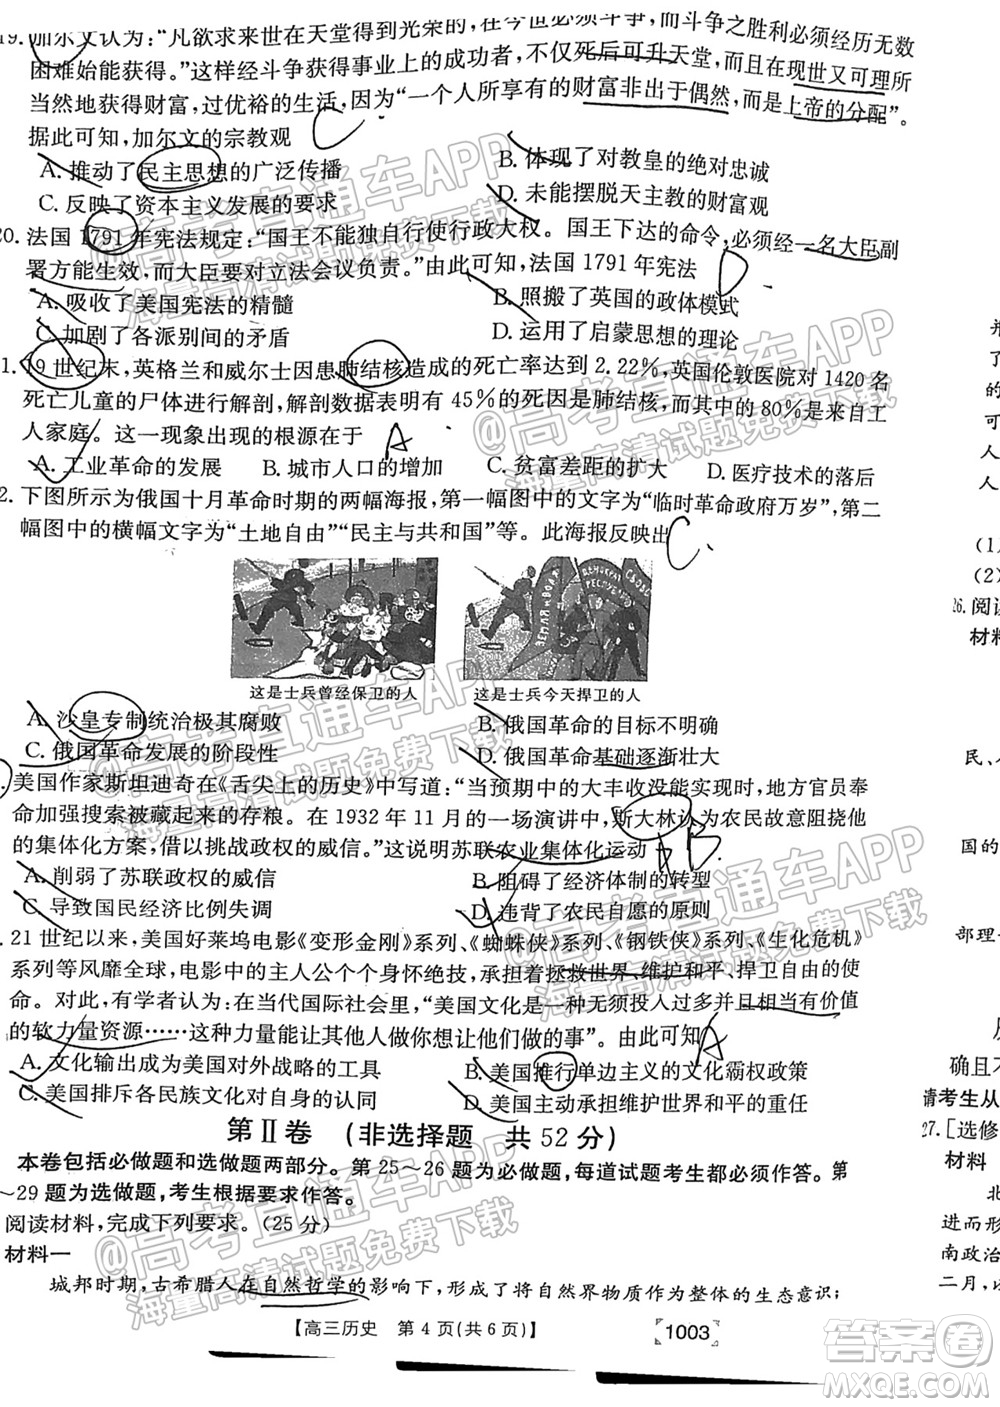 19. 加尔文认为：“凡欲求来世在天堂得到光荣的，在今世必须斗争，而斗争之胜利必须经历无数
困难始能获得。”这样经斗争获得事业上的成功者，不仅死后可升天堂，而且在现世又可理所
当然地获得财富，过优裕的生活，因为“一个人所享有的财富非出于偶然，而是上帝的分配”。
据此可知，加尔文的宗教观
A. 推动了民主思想的广泛传播 B. 体现了对教皇的绝对忠诚
C. 反映了资本主义发展的要求 D. 未能摆脱天主教的财富观
20. 法国1791年宪法规定：“国王不能独自行使行政大权。国王下达的命令，必须经一名大臣副
署方能生效，而大臣要对立法会议负责。”由此可知，法国1791年宪法
A. 吸收了美国宪法的精髓 B. 照搬了英国的政体模式
C. 加剧了各派别间的矛盾 D. 运用了启蒙思想的理论
1. 19世纪末，英格兰和威尔士因患肺结核造成的死亡率达到2.22%，英国伦敦医院对1420名
死亡儿童的尸体进行解剖，解剖数据表明有45%的死因是肺结核，而其中的80%是来自工
人家庭。这一现象出现的根源在于 A
A. 工业革命的发展 B. 城市人口的增加 C. 贫富差距的扩大 D. 医疗技术的落后
2. 下图所示为俄国十月革命时期的两幅海报，第一幅图中的文字为“临时革命政府万岁”，第二
幅图中的横幅文字为“土地自由”“民主与共和国”等。此海报反映出 C.
这是士兵曾经保卫的人 这是士兵今天捍卫的人
A. 沙皇专制统治极其腐败 B. 俄国革命的目标不明确
C. 俄国革命发展的阶段性 D. 俄国革命基础逐渐壮大
. 美国作家斯坦迪奇在《舌尖上的历史》中写道：“当预期中的大丰收没能实现时，地方官员奉
命加强搜索被藏起来的存粮。在1932年11月的一场演讲中，斯大林认为农民故意阻挠他
的集体化方案，借以挑战政权的威信。”这说明苏联农业集体化运动 B.
A. 削弱了苏联政权的威信 B. 阻碍了经济体制的转型
C. 导致国民经济比例失调 D. 违背了农民自愿的原则
. 21世纪以来，美国好莱坞电影《变形金刚》系列、《蜘蛛侠》系列、《钢铁侠》系列、《生化危机》
系列等风靡全球，电影中的主人公个个身怀绝技，承担着拯救世界、维护和平、捍卫自由的使
命。对此，有学者认为：在当代国际社会里，“美国文化是一种无须投入过多并且相当有价值
的软力量资源……这种力量能让其他人做你想让他们做的事”。由此可知 A
A. 文化输出成为美国对外战略的工具 B. 美国推行单边主义的文化霸权政策
C. 美国排斥各民族文化对自身的认同 D. 美国文化承担了维护世界和平的重任
第Ⅱ卷 （非选择题 共52分）
本卷包括必做题和选做题两部分。第25～26题为必做题，每道试题考生都必须作答。第
～29题为选做题，考生根据要求作答。
阅读材料，完成下列要求。（25分）
材料一
城邦时期，古希腊人在自然哲学的影响下，形成了将自然界物质作为整体的生态意识；
【高三历史 第4页（共6页）】 1003
了
的
可
人
(1)
(2)
26. 阅读
材料
民、
国的
部理
确且不
请考生从
27. [选修
材料
北
进而形
南政治
二月，
@高考直通车APP
海量高清试题免费下载
@高考直通车APP
海量高清试题免费下载
@高考直通车APP
海量高清试题免费下载
@高考直通车APP
海量高清试题免费下载
@高考直通车APP
海量高清试题免费下载
答案卷
MXQE.COM